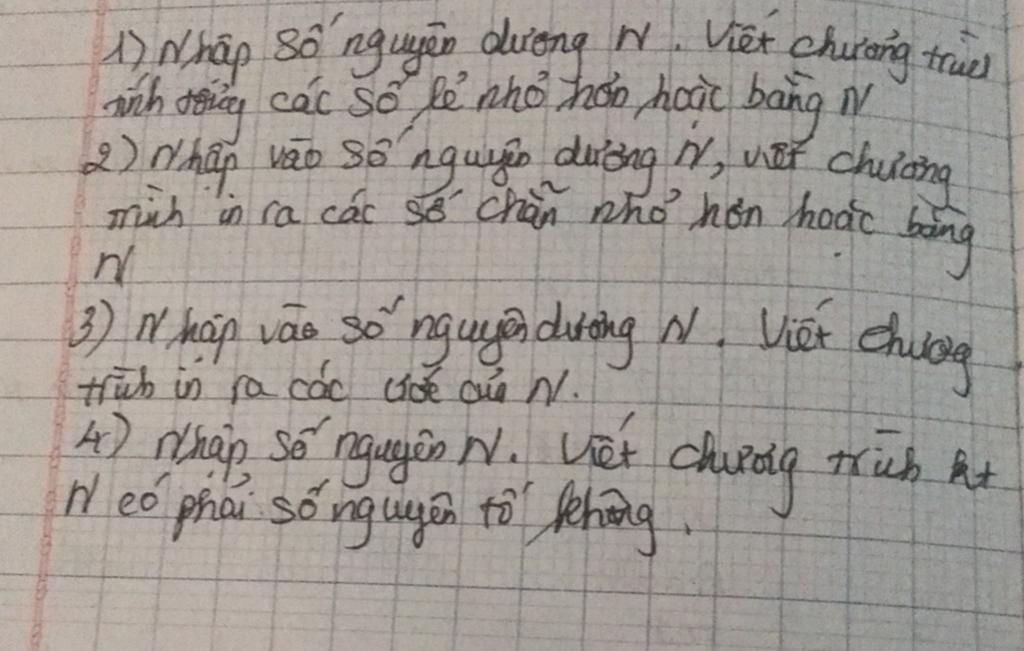 1) Nhập số nguyên dương N. Viết chương trình
tính tổng các số lẻ nhỏ hơn hoặc bằng N
2) Nhập vào số nguyên dương N, viết chương
trình in ra các số chẵn nhỏ hơn hoặc bằng
N
3) Nhập vào số nguyên dương N. Viết chương
trình in ra các ước của N.
4) Nhập số nguyên N. Viết chương trình kt
N có phải số nguyên tố không.